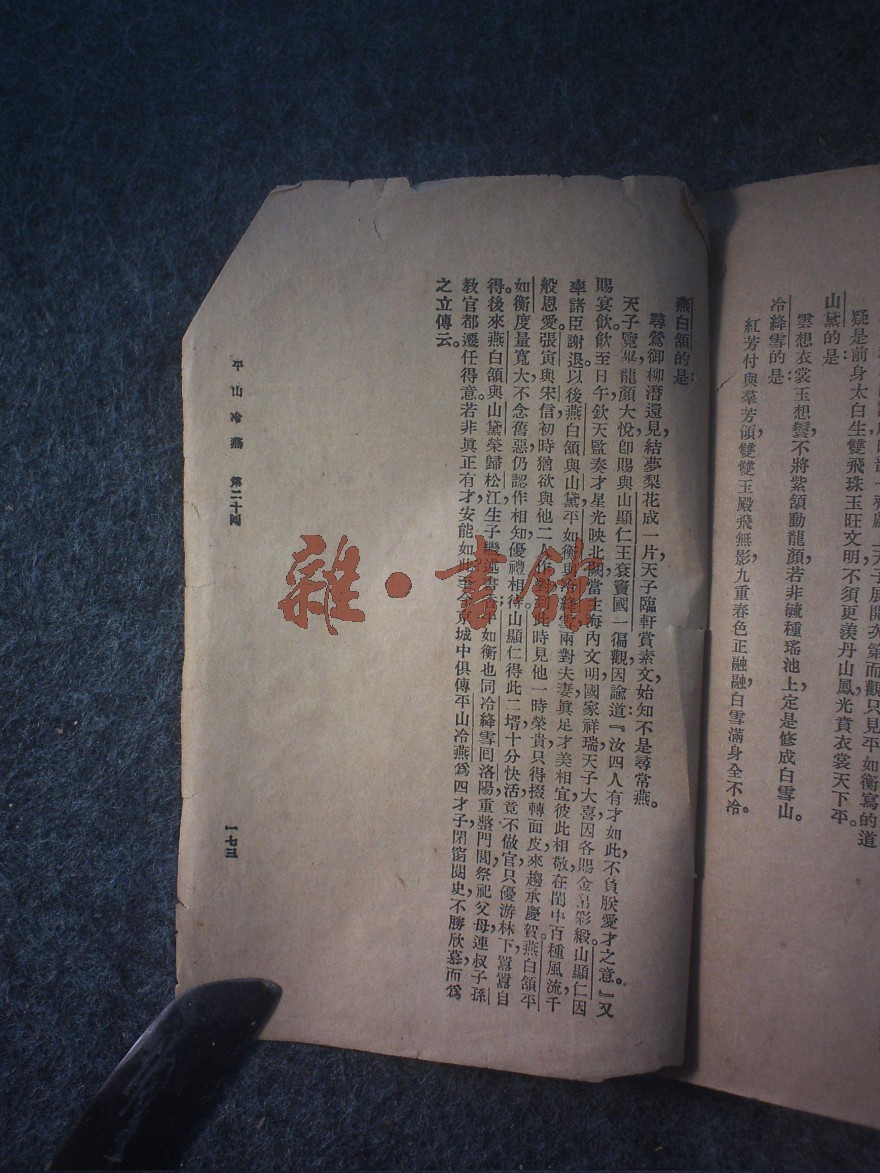 疑是前身太白生,雙飛珠玉旺文明,不須更羨丹山鳳,光賁衣裳天下平。
山黛的是:
雲想衣裳玉想鬟,不將紫頷動龍顏,若非毓種瑤池上,定是修成白雪山。
冷絳雪的是:
紅芳付與羣芳領,雙雙玉殿飛無影,九重春色正融融,白雪滿身全不冷。
燕白頷的是:
尋鶯御柳潛還見,結夢梨花成一片,天子臨軒賞素文,始知不是尋常燕。
天子覽畢,龍顏大悅,卽賜與山顯仁、王袞、竇國一徧觀,因諭道:『汝四人有才如此,不負朕愛才之意。』又
賜宴飲,飲至日午,欽天監奏才星光映北闕,當主海內文明,國家祥瑞,天子大喜,因各賜金帛彩緞。山顯仁因
率諸臣謝退。以後燕白頷與山黛,平如衡與冷絳雪,兩對夫妻,眞是才美相宜,彼此相敬,在閨中百種風流,千
般恩愛。張寅與宋信初時猶欲與他二人作對,到此時見他一時榮貴,只得掇轉面皮,來趨承慶賀。燕白頷平
如衡度量寬大,不念舊惡,仍認作相知,優禮相待。山顯仁得此二壻,十分快活,竟不做官,只優游林下,囂囂自
得。後來燕白頷與山黛榮歸松江,生子繼述書香;平如衡也同冷絳雪囘洛陽,重整門閭,祭祀父母,連叔子孫
教官都遷任得意。若非眞正有才,安能如此?至今京城中俱傳平山冷燕爲四才子,閉窗閱史,不勝欣慕,而爲
之立傳云。
平山冷燕 第二十囘
一七三
雜·書館